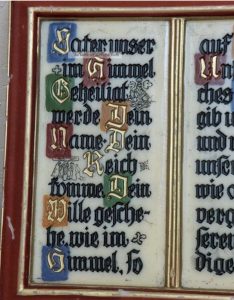 Vater unser
im Himmel
Geheiligt
werde Dein
Name. Dein
Reich
komme. Dein
Wille gesche-
he, wie im
Himmel, so
auf
Un
ches
gib u
und v
unser
wie a
verg
feren
dige